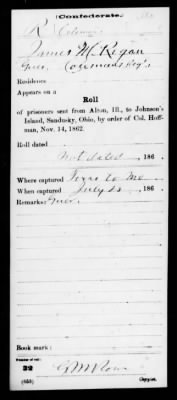 Confederate.
R
James M. Regan
Guer. Colemans Reg't.
Residence
Appears on a
Roll
of prisoners sent from Alton, Ill., to Johnson's
Island, Sandusky, Ohio, by order of Col. Hoff-
man, Nov. 14, 1862.
Roll dated
Not dated , 186 .
Where captured Texas Co Mo
When captured July 23 , 186 .
Remarks: Guer.
Book mark:
Number of roll:
32
(655) Copyist.